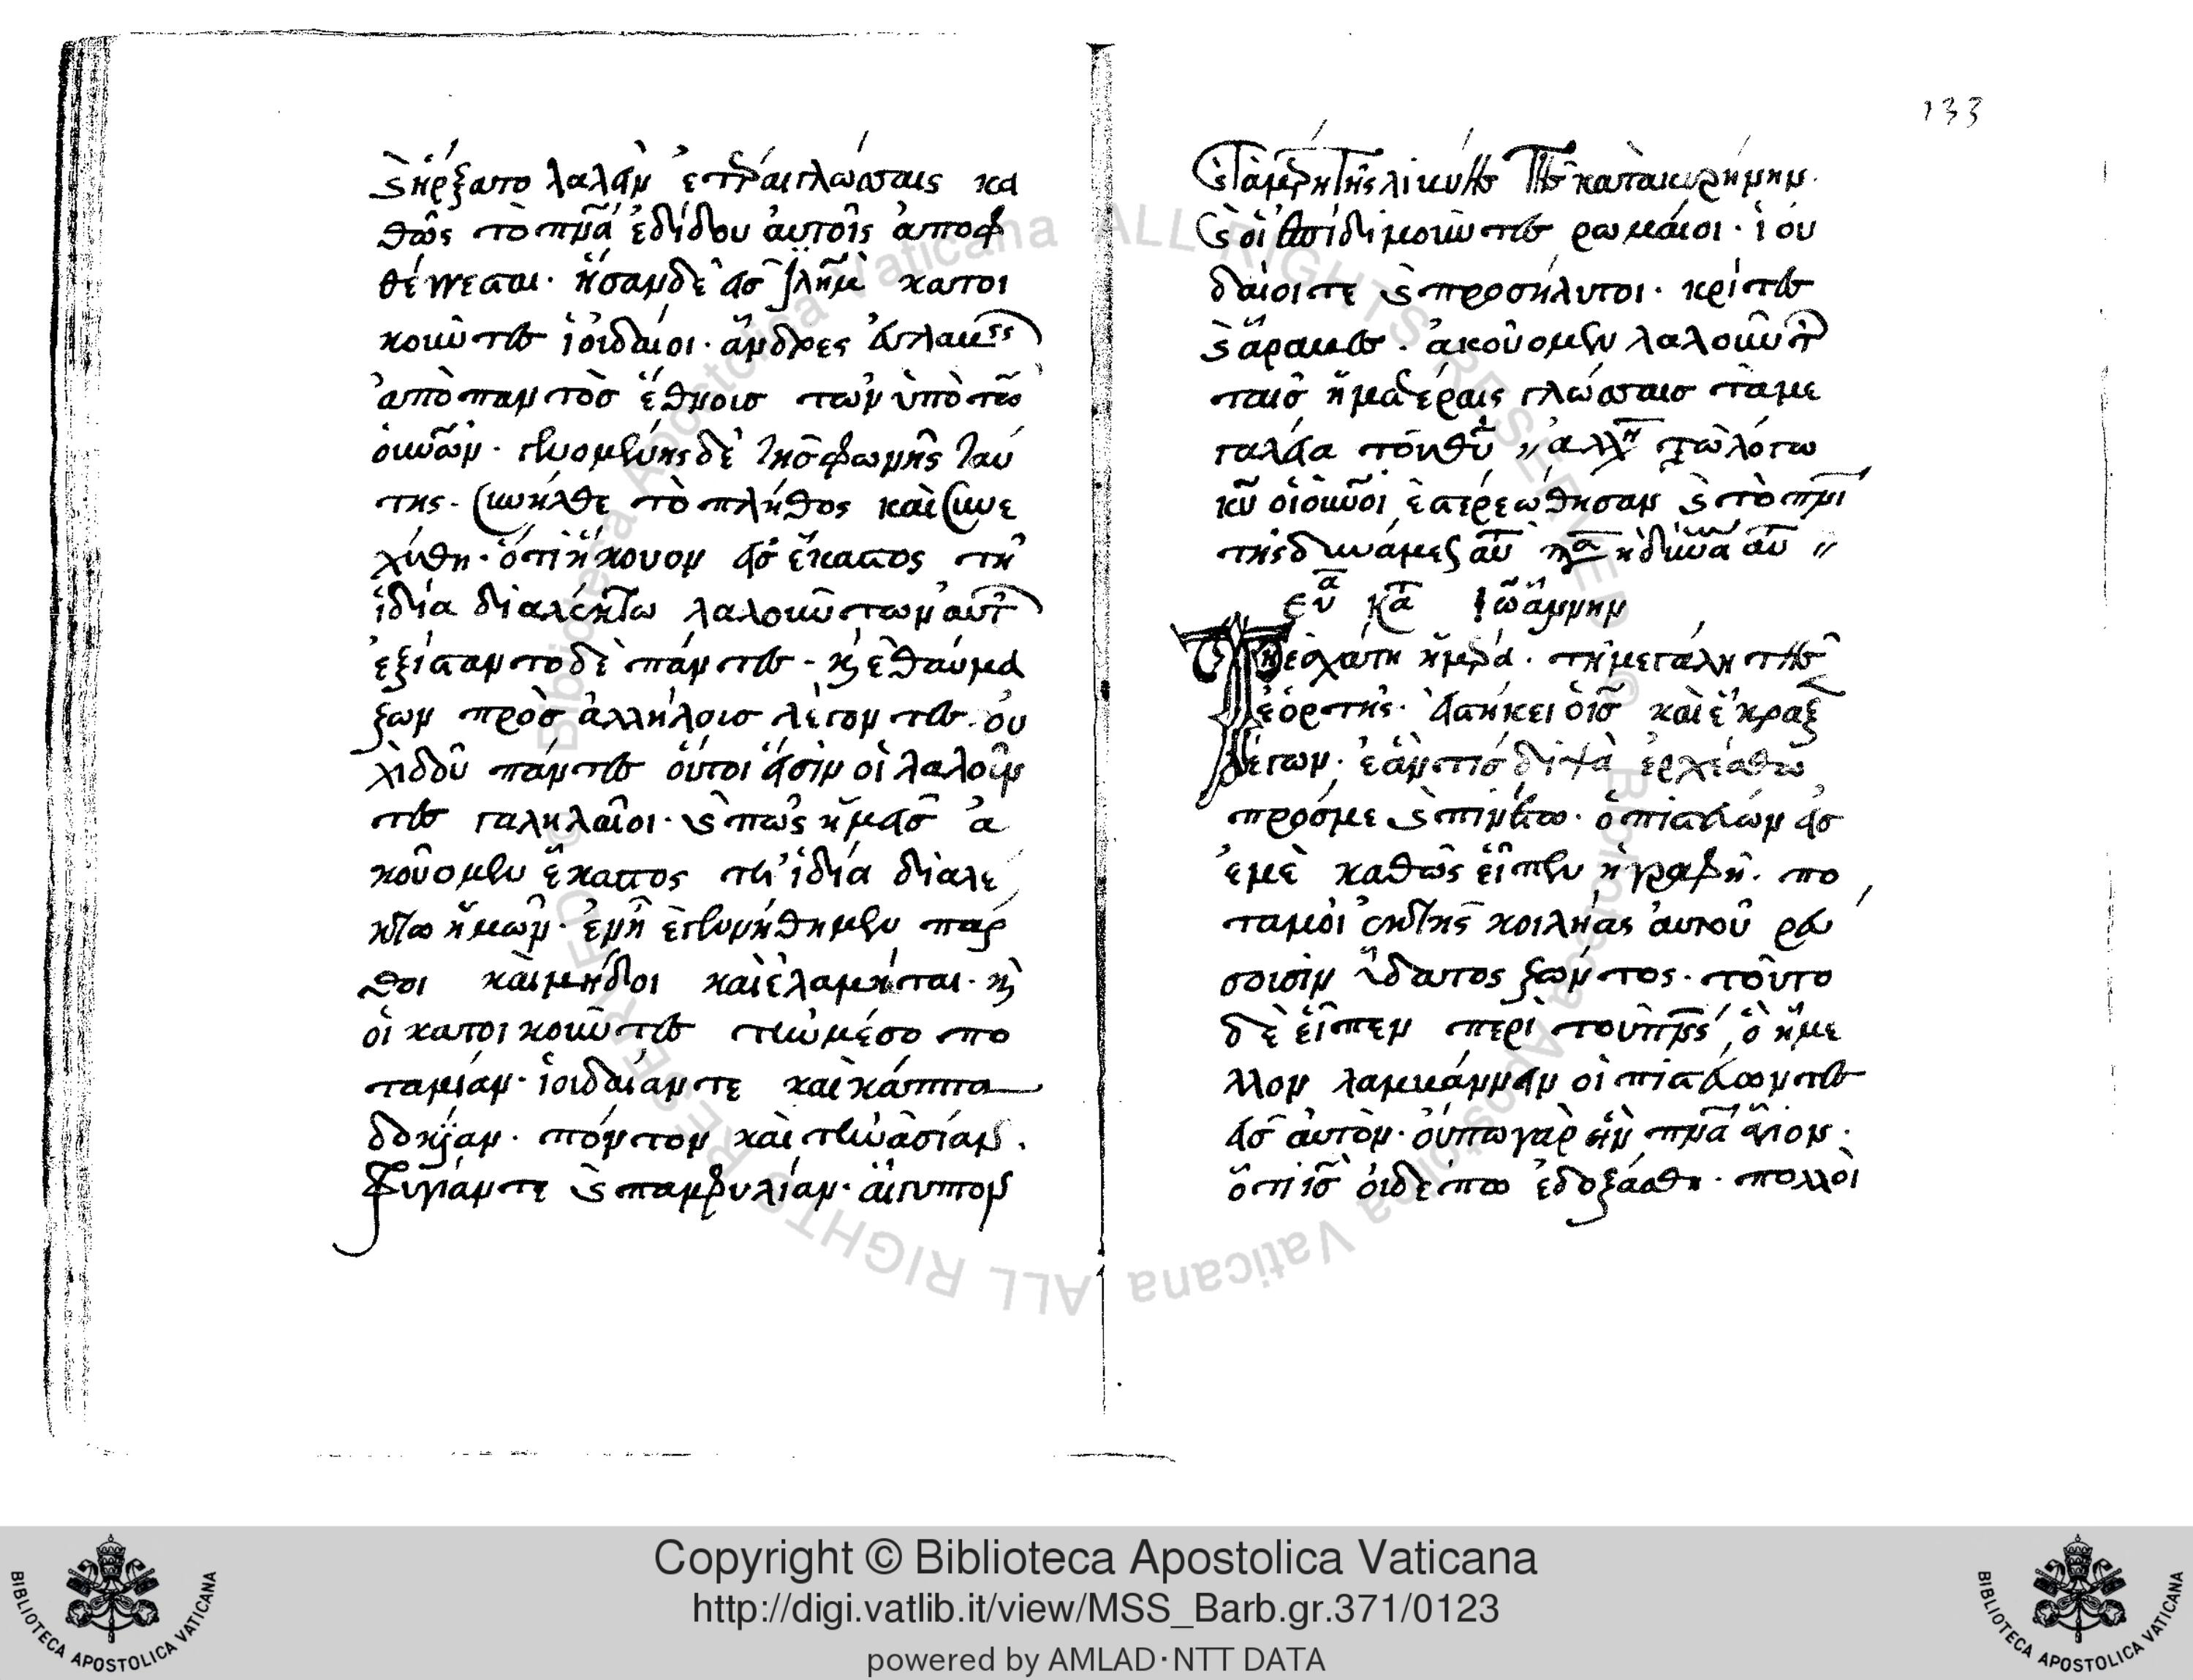 133
κ ἤρξατο λαλεῖν ἑτέραι γλώσσαις κα
θὼς το πνα ἐδίδου αὐτοῖς ἀποφ
θέγγεσται· ἦσαν δὲ εἰσ ἰλημ κατοι
κοῦντες ἰοιδαίοι· ἄνδρες εὐλαβεῖς
ἀπὸ παντὸσ ἔθνοισ τῶν ὑπὸ τὸν
οὐνῶν· γενομένης δὲ τησ φωνῆς ταύ
της· συνήλθε τὸ πλήθος καὶ συνε
χύθη· ὅτι ἤκουον εἰσ ἕκαστος τῆ
ἰδία διαλέκτω λαλούντων αὐτ
ἐξίσταντο δὲ πάντες· κ ἐθαύμα
ζων πρὸσ ἀλλήλοισ λέγοντες· οὐ
χὶ δοῦ πάντες οὗτοι εἰσὶν οἱ λαλοῦν
τες γαληλαῖοι· κ πῶς ἡμεῖσ ἀ
κοῦομεν ἕκαστος τη ἰδία διαλέ
κτω ἡμῶν· ἐν ῆ ἐγενήθημεν παρ
θοι καὶ μήδοι καὶ ἐλαμήται· κ
οἱ κατοικοῦντες τὴν μέσο πο
ταμίαν· ἰοιδαίαν τε καὶ κάππα
δοκίαν· πόντον καὶ τὴν ἀσίαν·
Φυγίαν τε κ παμφυλίαν· αἴγυπτον
κ τὰ μέρη τῆς λιβύης τῆς κατὰ κυρήνην·
κ οἱ ἐπιδιμοῦντες ρωμαίοι· ἰου
δαίοι τε κ προσήλυτοι· κρίτες
κ ἄραβες· ἀκοῦομεν λαλούντ
ταισ ἡμετέραις γλώσσαισ τὰ με
γαλεῖα τοῦ θυ // ἀλλη τῶ λόγω
κυ οἱ οὐνοι ἐστερεώθησαν κ τὸ πνι
τῆς δυνάμεις αυ //
ευα κατ Ἰωάννην
Τῆ ἐσχάτη ἡμέρα· τῆ μεγάλη της
ἑορτῆς· εἱστήκει ὁ ισ καὶ ἔκραξ
λέγων· ἐάν τισ διψὰ ἐρχέσθω
πρόσμε κ πινέτω· ὁ πιστεύων εἰσ
ἐμὲ καθὼς εἶπεν ἡ γραφή· πο
ταμοὶ ἐκ της κοιλήας ἀυτοῦ ρεύ
σοισὶν ὕδατος ζωντος· τοῦτο
δὲ εἶπεν περὶ τοῦ πνς, ὃ ἤμε
λλον λαμβάννειν οἱ πιστεύωντες
εἰσ ἀυτὸν· οὔπω γὰρ ἦν πνα ἅγιον·
ὅτι ισ οἰδέπω ἐδοξάσθη· πολλοὶ
Copyright © Biblioteca Apostolica Vaticana
http://digi.vatlib.it/view/MSS_Barb.gr.371/0123
powered by AMLAD·NTT DATA
BIBLIOTECA APOSTOLICA VATICANA
BIBLIOTECA APOSTOLICA VATICANA